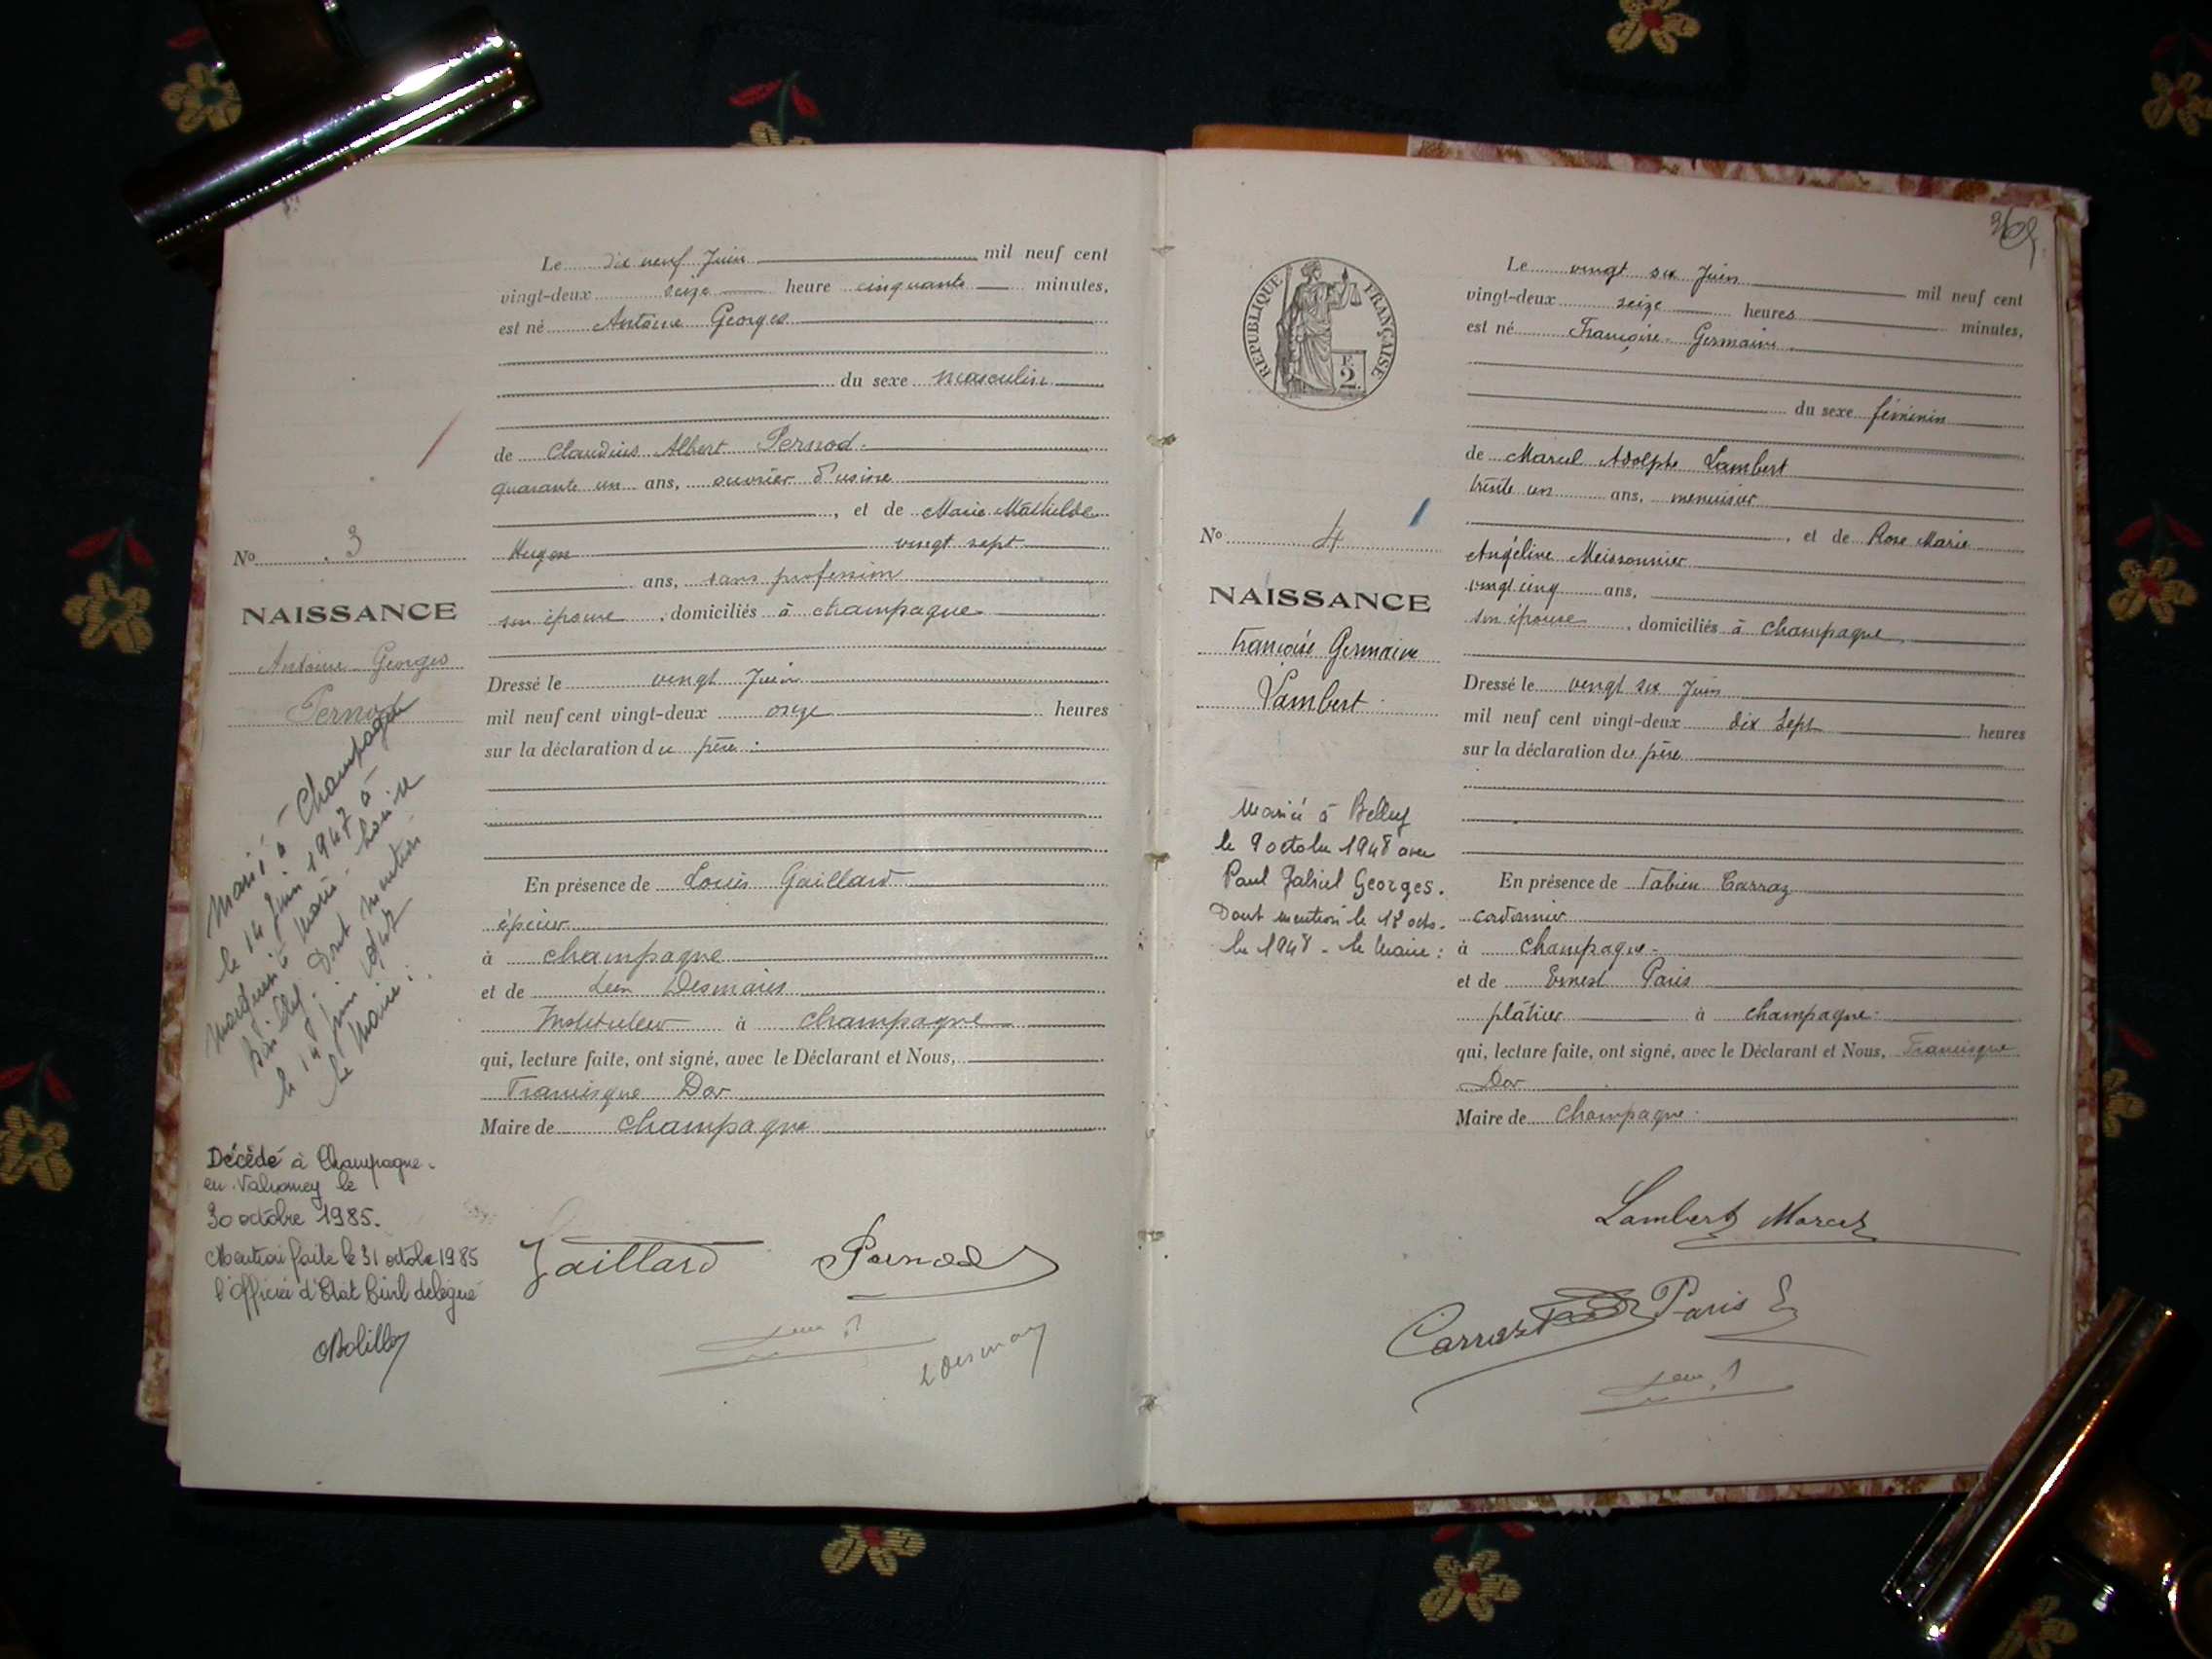 Le dix neuf Juin mil neuf cent
vingt-deux seize heure cinquante minutes,
est né Antoine Georges
du sexe masculin
de Claudius Albert Pernod
quarante un ans, ouvrier d'usine
, et de Marie Mathilde
Hugon vingt sept
ans, sans profession
son épouse, domiciliés à Champagne
Dressé le vingt Juin
mil neuf cent vingt-deux onze heures
sur la déclaration du père
En présence de Louis Gaillard
épicier
à Champagne
et de Léon Desmaris
Instituteur à Champagne
qui, lecture faite, ont signé, avec le Déclarant et Nous,
Francisque Dor
Maire de Champagne
No 3
NAISSANCE
Antoine Georges
Pernod
Marié à Champagne
le 14 Juin 1947 à
Marie-Louise
Dont mention
le Maire :
Décédé à Champagne
en Valromey le
30 octobre 1985.
Mention faite le 31 octobre 1985
l'Officier d'Etat Civil délégué
Gaillard Pernod
L Desmaris
369
REPUBLIQUE FRANÇAISE
F.
2
Le vingt six Juin mil neuf cent
vingt-deux seize heures minutes,
est né Françoise Germaine
du sexe féminin
de Marcel Adolphe Lambert
trente un ans, menuisier
, et de Rose Marie
Angéline Meissonnier
vingt cinq ans,
son épouse, domiciliés à Champagne
Dressé le vingt six Juin
mil neuf cent vingt-deux dix Sept heures
sur la déclaration du père
En présence de Fabien Carraz
cordonnier
à Champagne
et de Ernest Paris
plâtrier à Champagne
qui, lecture faite, ont signé, avec le Déclarant et Nous, Francisque
Dor
Maire de Champagne
No 4
NAISSANCE
Françoise Germaine
Lambert
Mariée à Belley
le 9 octobre 1948 avec
Paul Gabriel Georges.
Dont mention le 18 octo-
bre 1948 - le Maire :
Lambert Marcel
Carraz Paris E